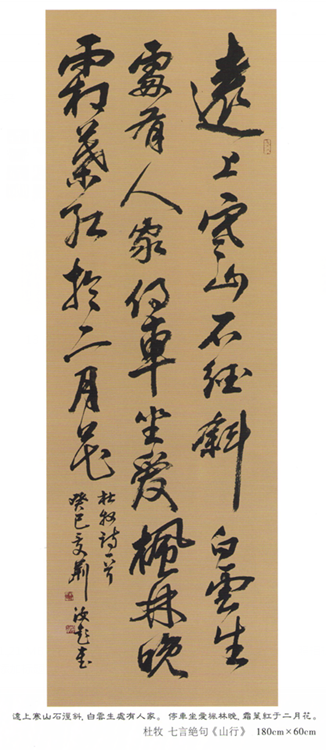 遠上寒山石徑斜白雲生
處有人家停車坐愛楓林晚
霜葉紅於二月花
杜牧詩一首
癸巳
遠上寒山石徑斜,白雲生處有人家。 停車坐愛楓林晚,霜葉紅于二月花。
杜牧 七言绝句《山行》 180cm×60cm